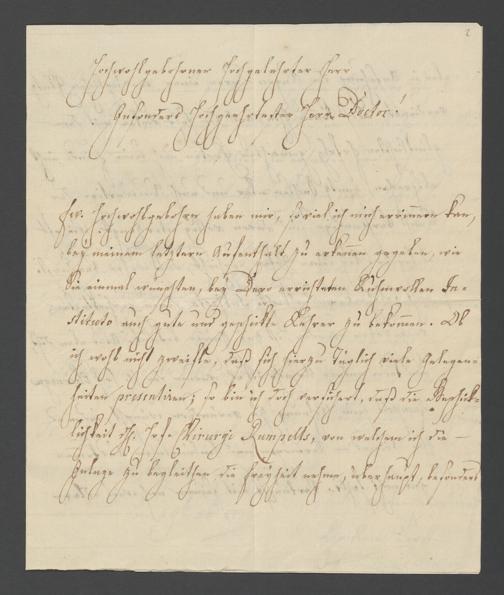 2
Hochwohlgebohrner Hochgelehrter Herr
Besonders Hochgeehrtester Herr Doctor!
Ew. Hochwohlgebohrn haben mir, so viel ich mich erinnern kan,
bey meinem letztern Aufenthalt zu erkennen gegeben, wie
Sie einmal wünschten, bey Dero errichteten Ruhmvollen In-
stituto auch gute und geschickte Lehrer zu bekommen. Ob
ich wohl nicht zweifle, daß sich hierzu täglich viele Gelegen-
heiten presentiren; so bin ich doch versichert, daß die Geschick-
lichkeit Hofe Chirurgi Rumpelts, von welchem ich die
Anlage zu begleithen die Freyheit nehme, überhaupt, besonders